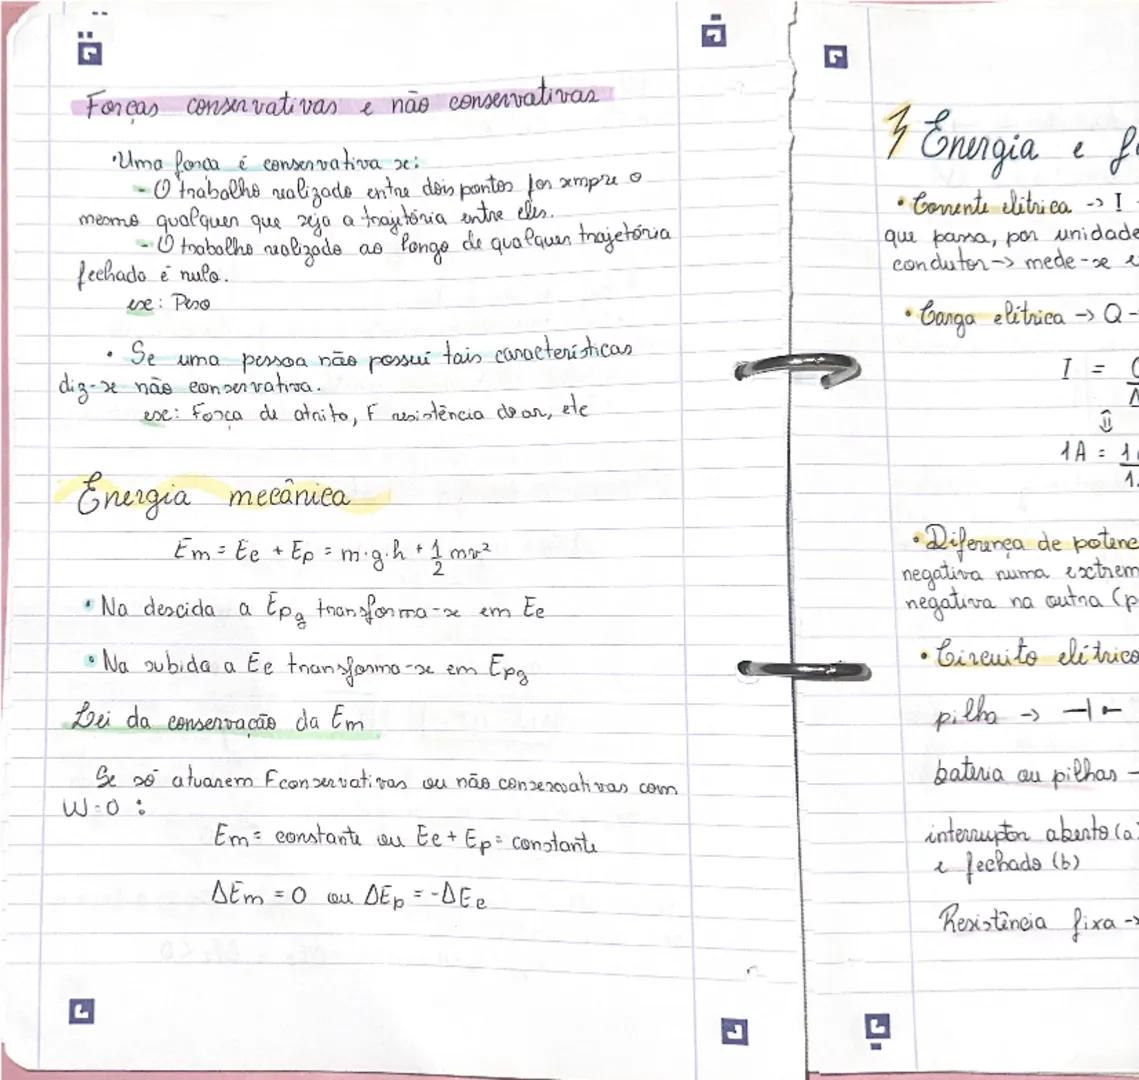 Forças conservativas e não conservativas
•Uma força é conservativa se:
- O trabalho realizado entre dois pontos for sempre o
mesmo qualquer que seja a trajetória entre eles.
- O trabalho realizado ao longo de qualquer trajetória
fechado é nulo.
exe: Peso
• Se uma pessoa não possui tais características
diz-se não conservativa.
exe: Força de atrito, F resistência do ar, etc
Energia mecânica
Em = Ec + Ep = m.g.h + 1/2 mv²
• Na descida a Epg transforma-se em Ec
• Na subida a Ec transforma-se em Epg
Lei da conservação da Em
Se só atuarem Fconservativas ou não conservativas com
W=0 :
Em= constante ou Ec + Ep= constante
ΔEm = 0 ou ΔEp = -ΔEc
Energia e
• Corrente elétrica -> I
que passa, por unidade
condutor-> mede-se
• Carga elétrica -> Q -
I =
⇕
1A =
• Diferença de
negativa numa
negativa na outra
• Circuito elétrico
pilha -> ⊣⊢
bateria ou pilhas -
interruptor aberto (a)
e fechado (b)
Resistência fixa ->